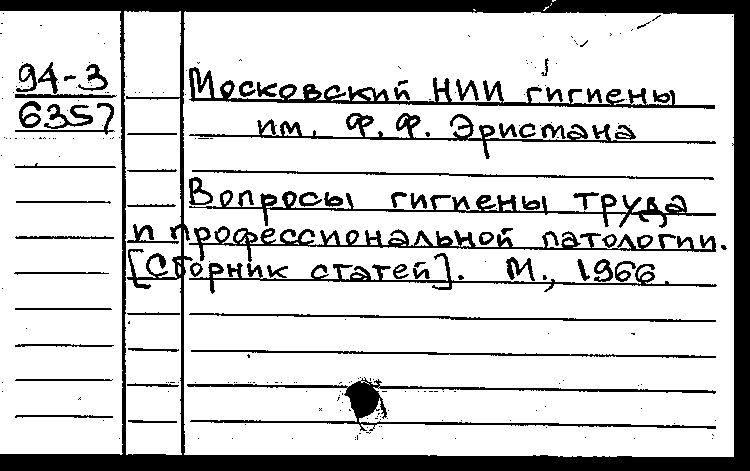 94-3
6357
Московский НИИ гигиены
им. Ф. Ф. Эристана
Вопросы гигиены труда
и профессиональной патологии.
[Сборник статей]. М., 1966.